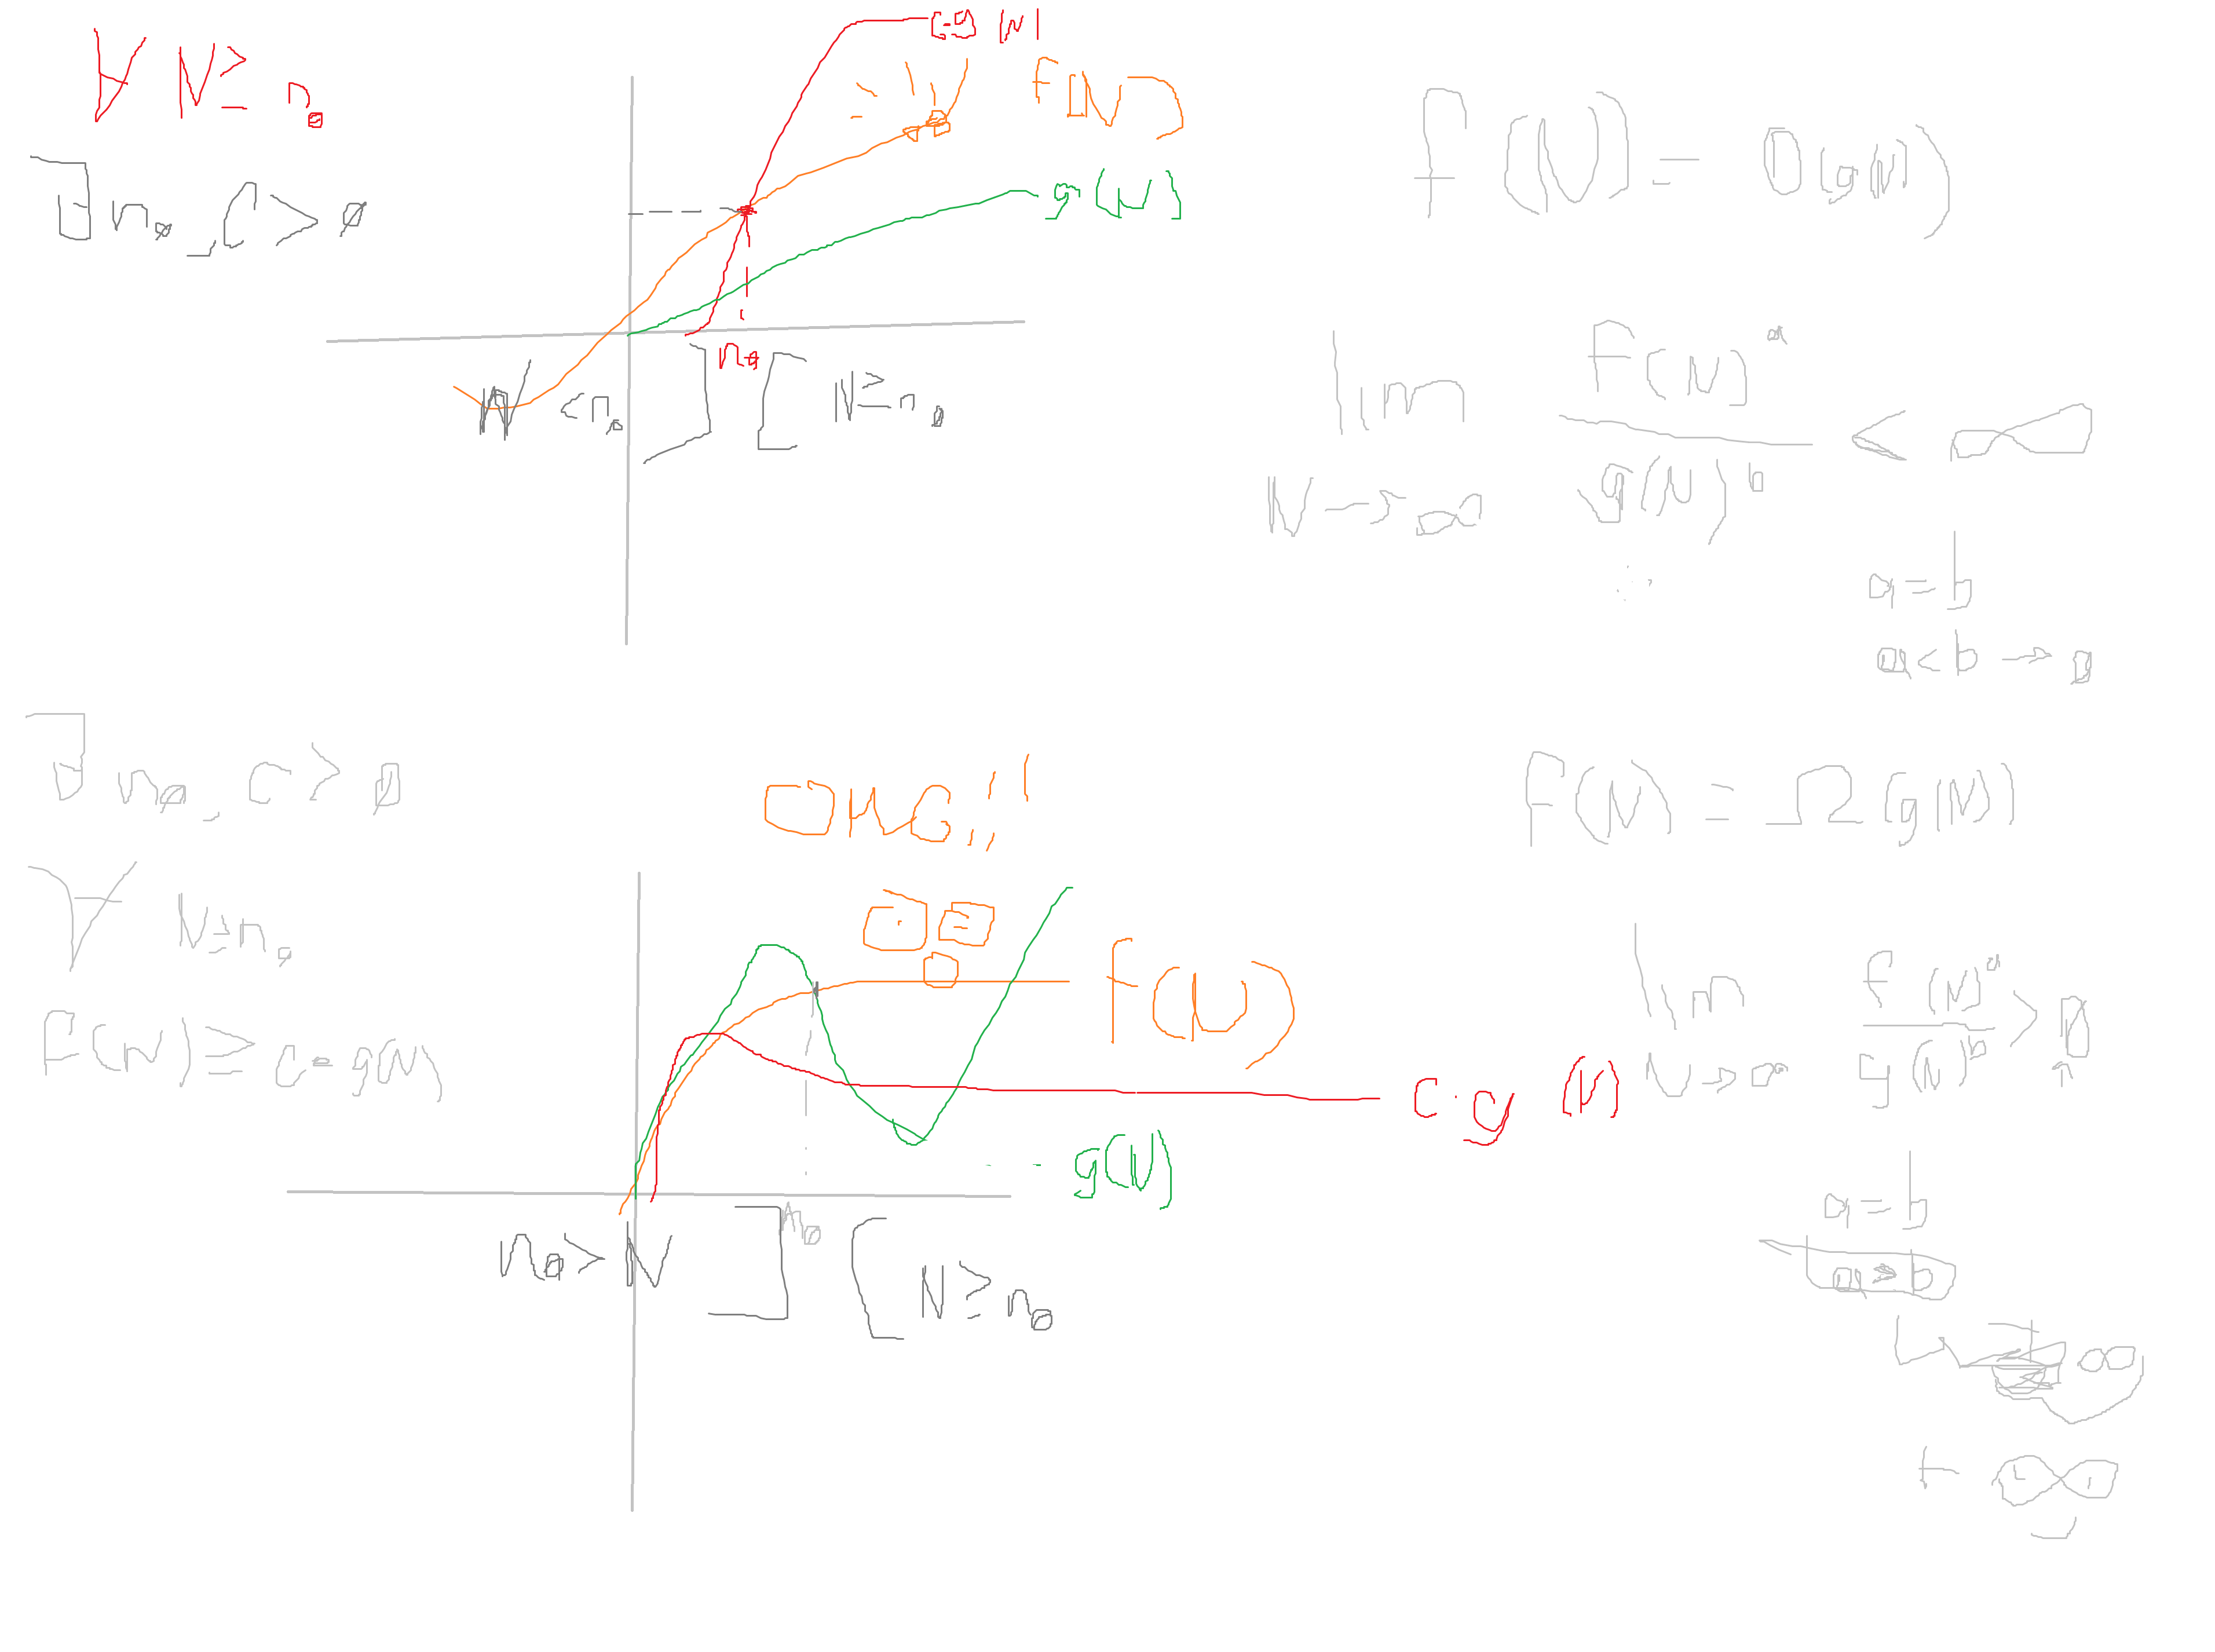 ∀ N ≥ n₀
∃ n₀, C > 0
c g(N)
f(N)
g(N)
n₀
N < n₀ ] [ N ≥ n₀
f(N) = O(g(N))
lim f(N)ᵃ / g(N)ᵇ < ∞
N -> ∞
a = b
a < b → 0
∃ n₀, C > 0
∀ N ≥ n₀
F(N) ≥ C - g(N)
OMG !!
f(N)
c · g(N)
g(N)
n₀
n₀ > N ] [ N ≥ n₀
F(N) = Ω g(N)
lim f(N)ᵃ / g(N)ᵇ > 0
N -> ∞
a = b
a > b
+ ∞